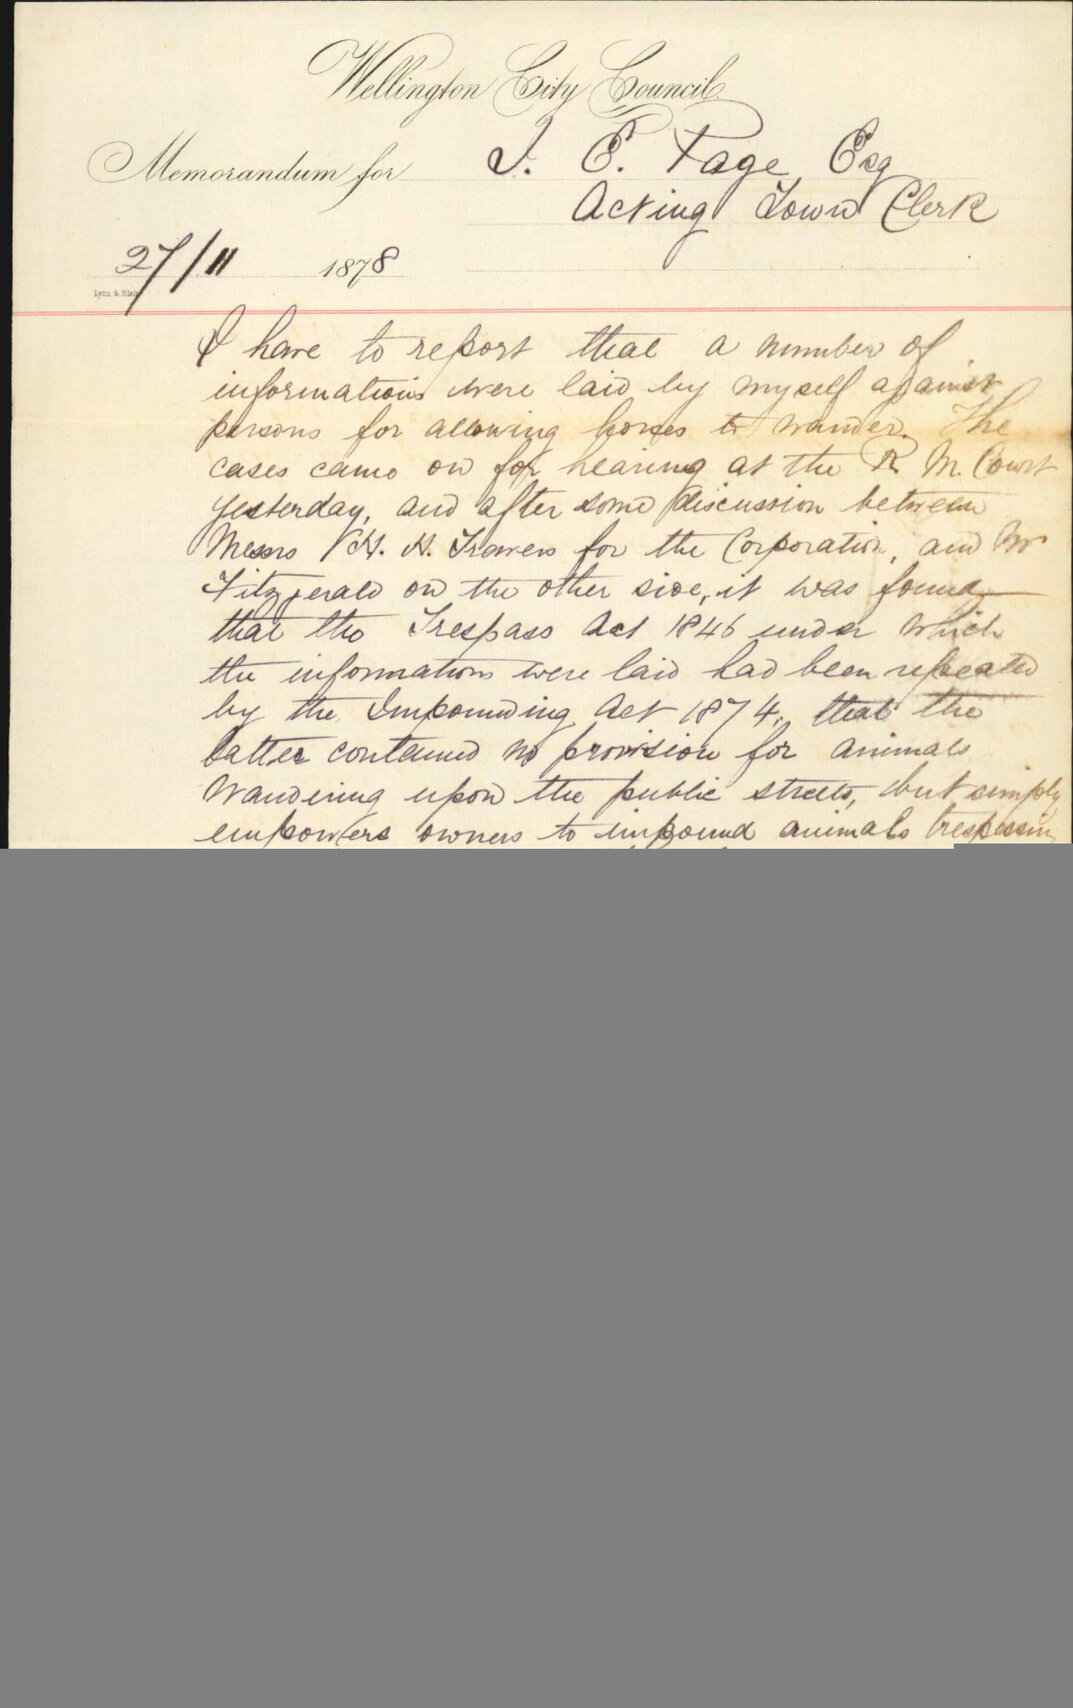 Wellington City Council
Memorandum for J. E. Page Esq
Acting Town Clerk
27/11 1878
Lyon & Blair
I have to report that a number of
informations were laid by myself against
persons for allowing horses to wander. The
cases came on for hearing at the R. M. Court
yesterday, and after some discussion between
Messrs H. Travers for the Corporation, and Mr
Fitzgerald on the other side, it was found
that the Trespass Act 1846 under which
the informations were laid had been repealed
by the Impounding Act 1874, that the
latter contained no provision for animals
wandering upon the public streets, but simply
empowers owners to impound animals trespassing